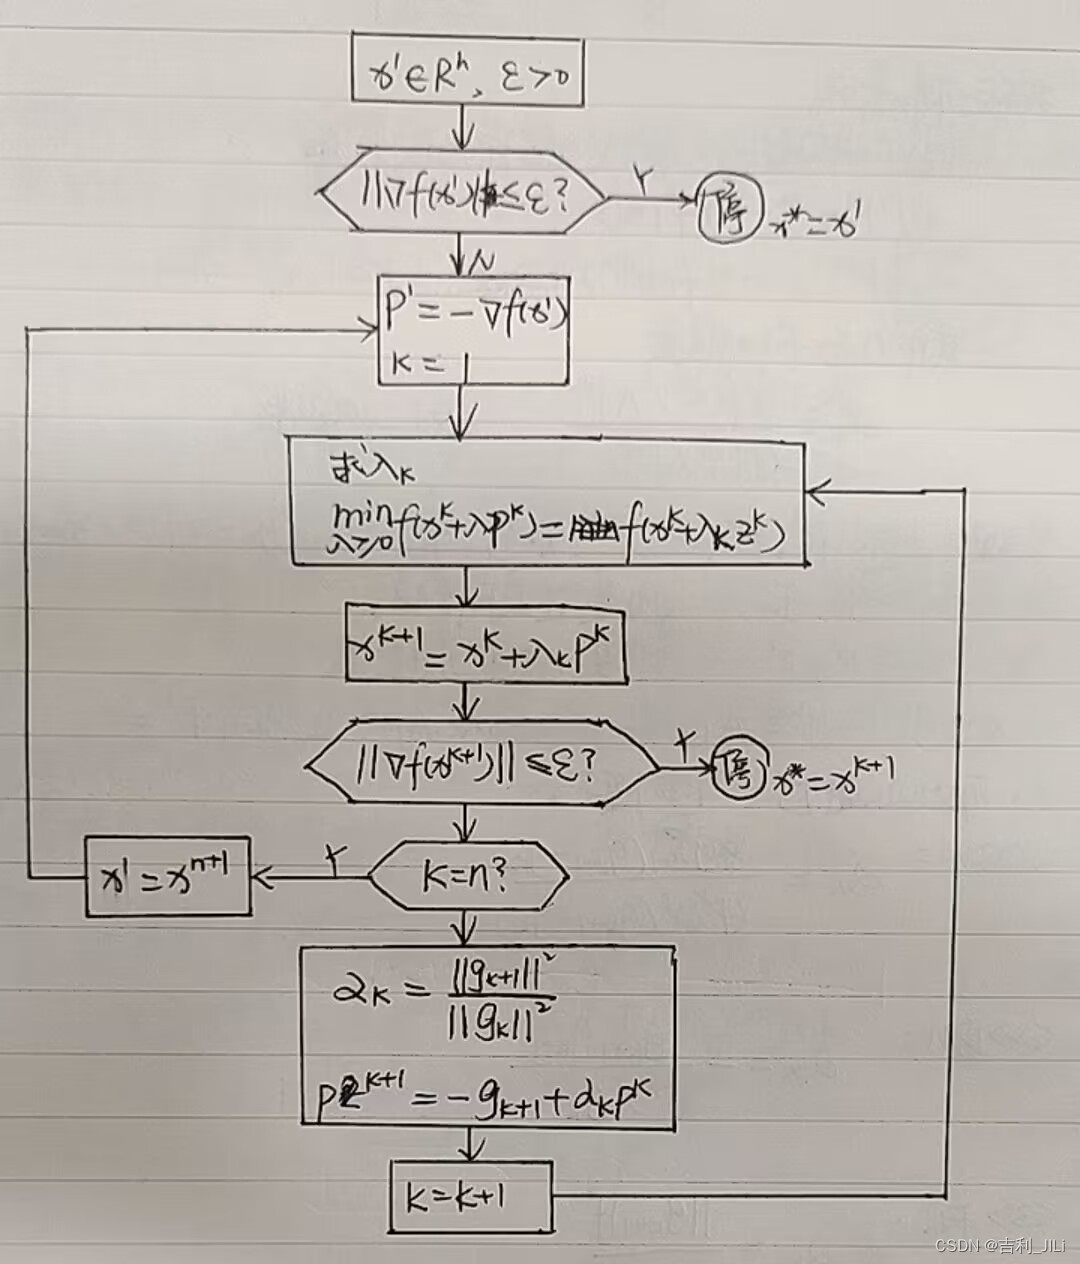 x¹∈Rⁿ, ε>0
||∇f(x¹)||≤ε?
Y
停 x*=x¹
N
P¹=-∇f(x¹)
k=1
求λₖ
min f(xᵏ+λPᵏ)= f(xᵏ+λₖzᵏ)
λ≥0
xᵏ⁺¹=xᵏ+λₖPᵏ
||∇f(xᵏ⁺¹)||≤ε?
Y
停 x*=xᵏ⁺¹
k=n?
Y
x¹=xⁿ⁺¹
αₖ=||gₖ₊₁||²/||gₖ||²
Pᵏ⁺¹=-gₖ₊₁+αₖPᵏ
k=k+1
CSDN @吉利_JILi